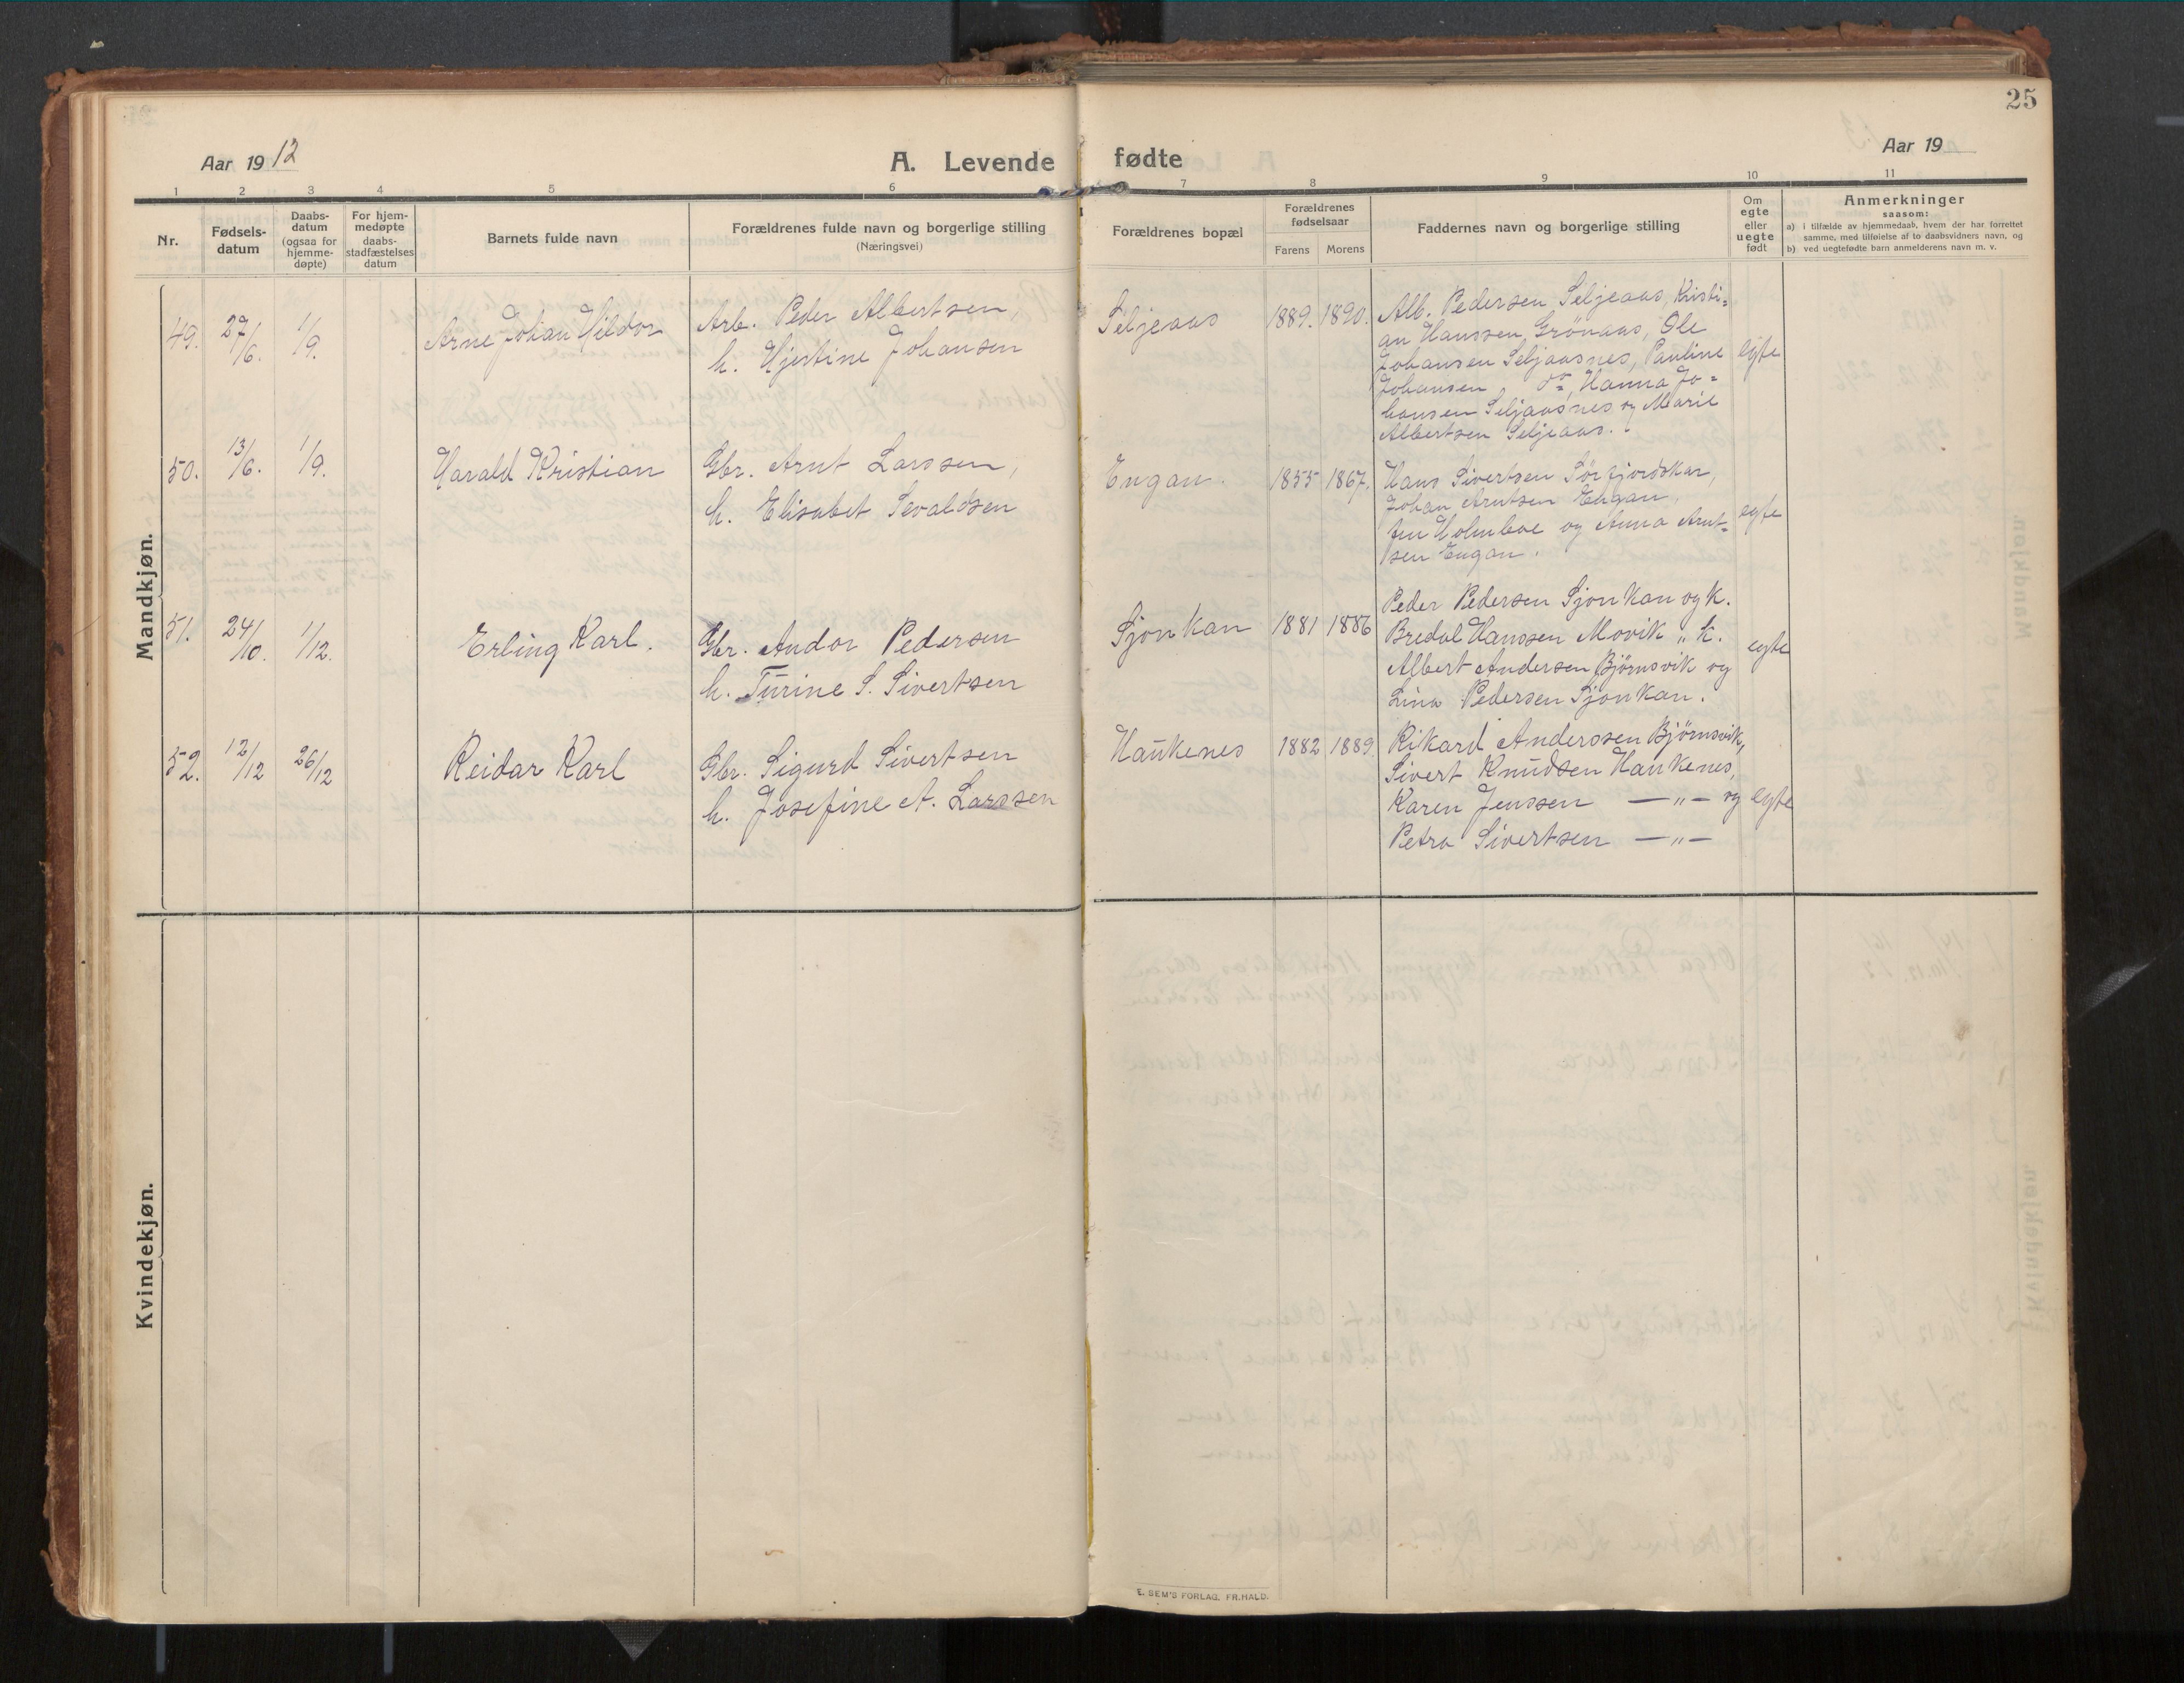 25
Aar 1912
A. Levende
fødte
Aar 19
1 2 3 4 5 6 7 8 9 10 11
Nr.
Fødsels-
datum
Daabs-
datum
(ogsaa for
hjemme-
døpte)
For hjem-
medøpte
daabs-
stadfæstelses
datum
Barnets fulde navn
Forældrenes fulde navn og borgerlige stilling
(Næringsvei)
Forældrenes bopæl
Forældrenes
fødselsaar
Farens Morens
Faddernes navn og borgerlige stilling
Om
egte
eller
uegte
født
Anmerkninger
saasom:
a) i tilfælde av hjemmedaab, hvem der har forrettet
samme, med tilføielse af to daabsvidners navn, og
b) ved uegtefødte barn anmelderens navn m. v.
Mandkjøn.
49. 27/6. 1/9. Arne Johan Hildor
Arb. Peder Albertsen,
h. Hjertine Johansen
Seljeaas 1889. 1890.
Alb. Pedersen Seljeaas, Kristi=
an Hanssen Grönaas, Ole
Johansen Seljaasnes, Pauline
Johansen do, Hanna Jo=
hansen Seljaasnes og Marie
Albertsen Seljeaas.
egte
50. 13/6. 1/9. Harald Kristian
Gbr. Arnt Larssen,
h. Elisabet Sevaldsen
Engan. 1855 1867.
Hans Sivertsen Sörfjordskar,
Johan Arntsen Engan,
Jen Holmboe og Anna Arnt=
sen Engan.
egte
51. 24/10. 1/12. Erling Karl.
Gbr. Andor Pedersen
h. Turine S. Sivertsen
Sjonkan 1881 1886
Peder Pedersen Sjonkan og k.
Bredal Hanssen Movik „ k.
Albert Andersen Bjørnsvik og
Lina Pedersen Sjonkan.
egte
52. 12/12 26/12 Reidar Karl
Gbr. Sigurd Sivertsen
h. Josefine A. Larssen
Haukenes 1882 1889
Rikard Anderssen Bjørnsvik,
Sivert Knudsen Haukenes,
Karen Jenssen — „ — og
Petra Sivertsen — „ —
egte
Kvindekjøn.
E. SEM'S FORLAG. FR. HALD.